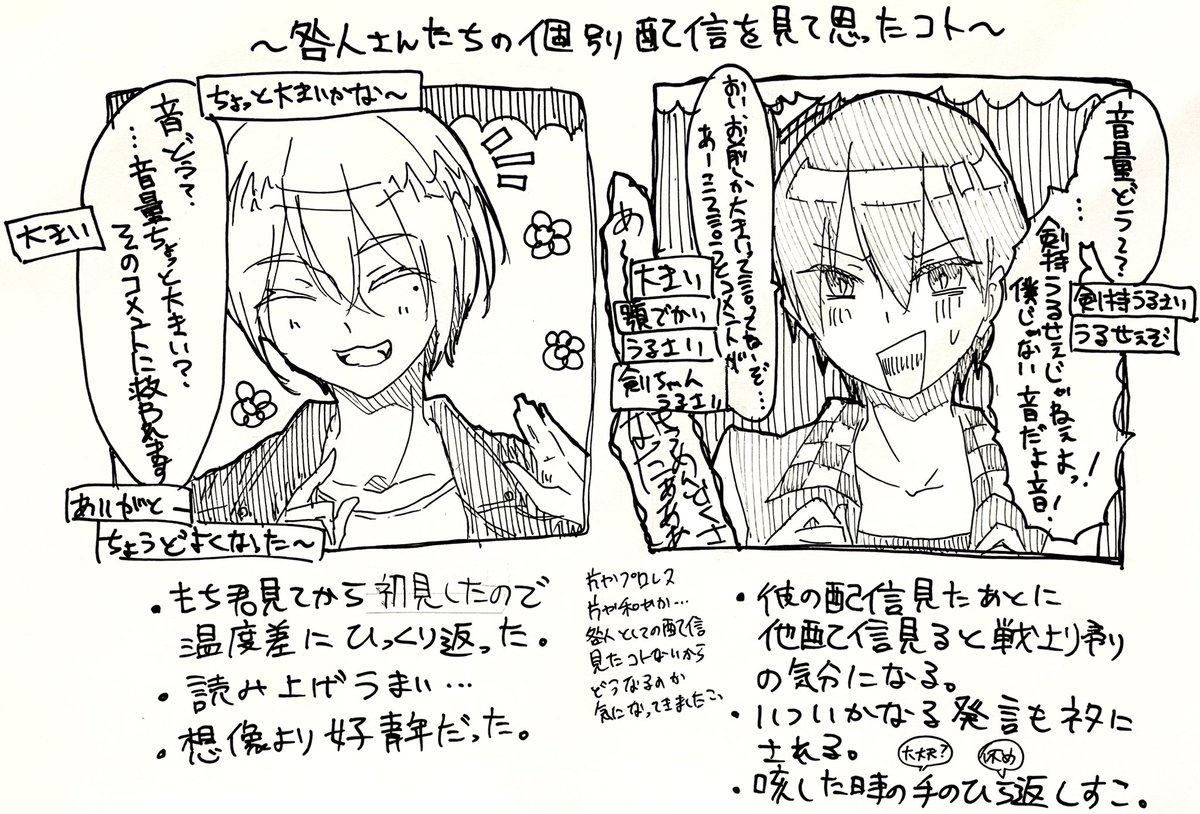 ～咎人さんたちの個別配信を見て思ったコト～
ちょっと大きいかな～
音どう？
…音量ちょっと大きい？
そのコメントに救われます
大きい
ありがと―
ちょうどよくなった～
音量どう？？
…
剣持うるせぇじゃねぇよっ！
僕じゃない音だよ音！
剣持うるさい
うるせぇぞ
おい、お前しか大きいって言ってねぇぞ…
あーこういうとコメントが
あ～
大きい
顎でかい
うるさい
剣ちゃん
うるさい
せぇめんどくさ
なったあああ
・もち君見てから初見したので
温度差にひっくり返った。
・読み上げうまい…
・想像より好青年だった。
片やプロレス
片や和やか…
咎人としての配信
見たコトないから
どうなるのか
気になってきましたこ、
・彼の配信見たあとに
他配信見ると戦上り狩り
の気分になる。
・いついかなる発言もネタに
される。
大丈夫？
休め
・咳した時の手のひら返しすこ。